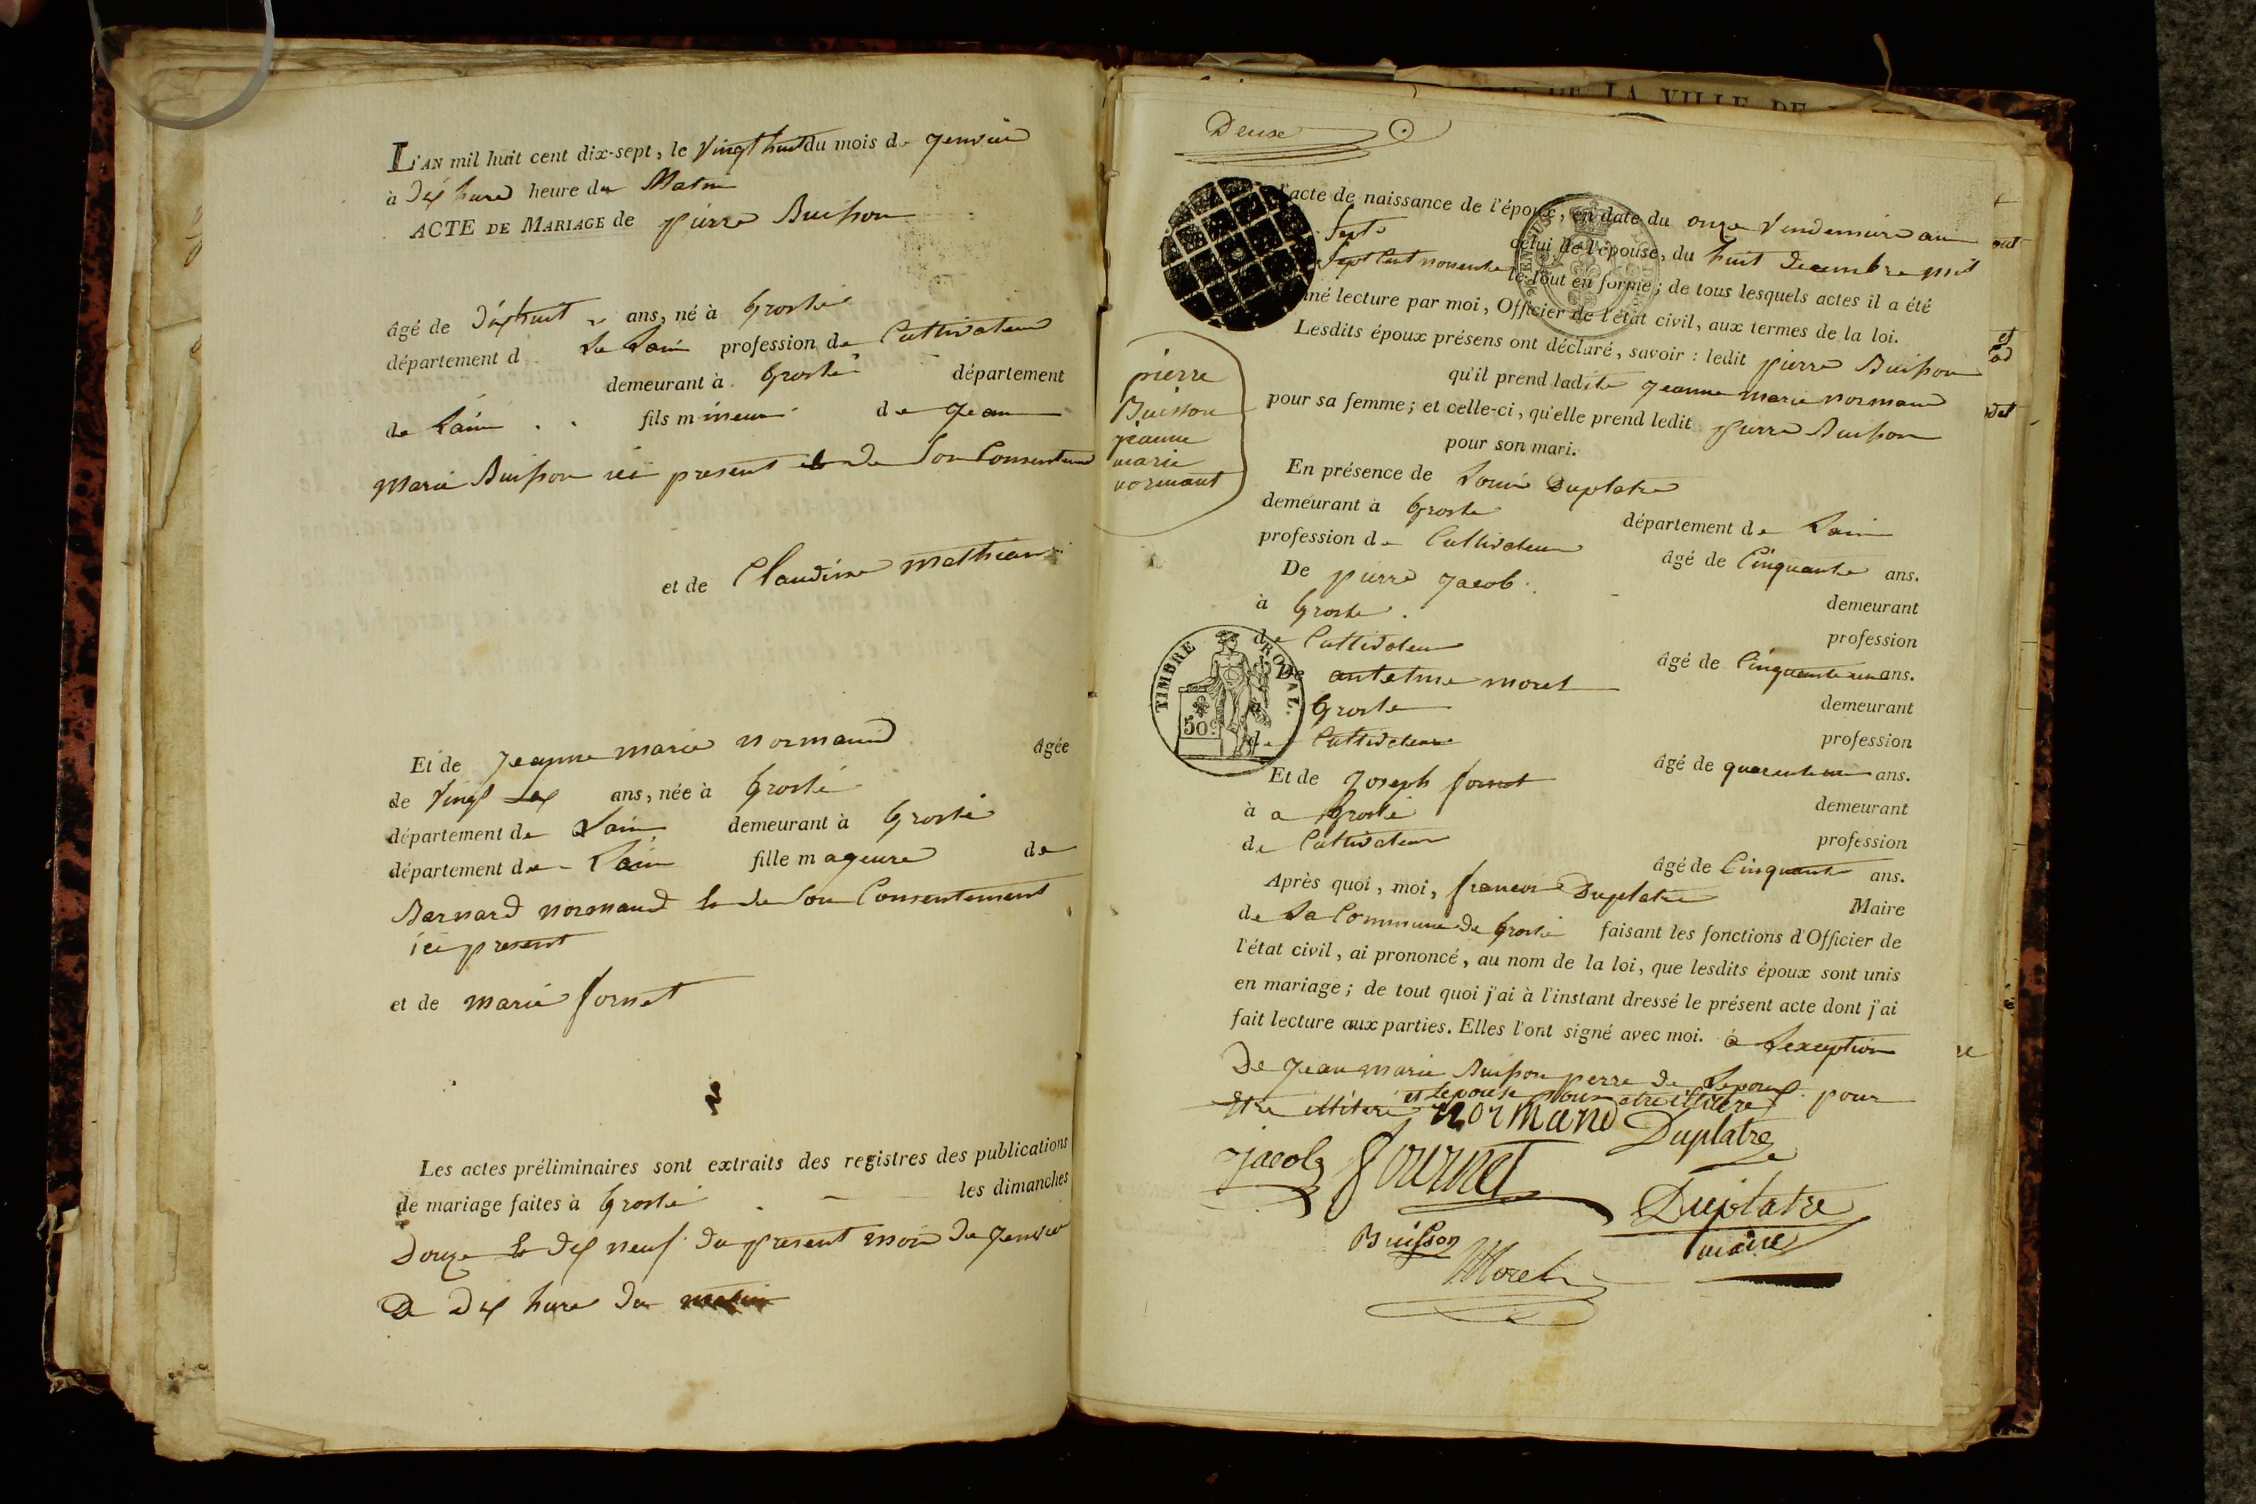 L'AN mil huit cent dix-sept, le Vingt huit du mois de jenvier
à dix hure heure du Matin
ACTE DE MARIAGE de pierre Buisson
âgé de dixhuit ans, né à Groslé
département d Le Lain profession de Cultivateur
demeurant à Groslé département
de Lain fils mineur de jean
Marie Buisson ici present et de Son Consentement
et de Claudine Mathian
Et de jeanne marie normand âgée
de Vingt Six ans, née à Groslé
département de Lain demeurant à Groslé
département de Lain fille mageure de
Bernard normand et de Son Consentement
ici present
et de marie fornet
Les actes préliminaires sont extraits des registres des publications
de mariage faites à Groslé les dimanches
Douze et dix neuf du present mois de jenvier
a dix hure du matin
DE LA VILLE DE
Deuse
pierre
Buisson
jeanne
marie
normant
l'acte de naissance de l'époux, en date du onze Vendemiere an
Sept celui de l'épouse, du huit decembre mil
Sept Cent nonente le tout en forme; de tous lesquels actes il a été
né lecture par moi, Officier de l'état civil, aux termes de la loi.
Lesdits époux présens ont déclaré, savoir: ledit pierre Buisson
qu'il prend ladite jeanne marie normand
pour sa femme; et celle-ci, qu'elle prend ledit pierre Buisson
pour son mari.
En présence de Louis Duplatre
demeurant à Grosle département de Lain
profession de Cultivateur âgé de Cinquante ans.
De pierre jacob demeurant
à Grosle profession
de Cultivateur âgé de Cinquante un ans.
De antelme moret demeurant
à Grosle profession
de Cultivateur âgé de quarente un ans.
Et de joseph fornet demeurant
à a Groslé profession
de Cultivateur âgé de Cinquante ans.
Après quoi, moi, francois Duplatre Maire
de La Commune de Groslé faisant les fonctions d'Officier de
l'état civil, ai prononcé, au nom de la loi, que lesdits époux sont unis
en mariage; de tout quoi j'ai à l'instant dressé le présent acte dont j'ai
fait lecture aux parties. Elles l'ont signé avec moi. a Lexception
De jean marie Buisson perre de Lepoux pour
Etre illiteré et lepouse pour etre illitere
normand Duplatre
jacob fournet
Duplatre
Buisson maire
Moret
TIMBRE ROYAL.
50 c